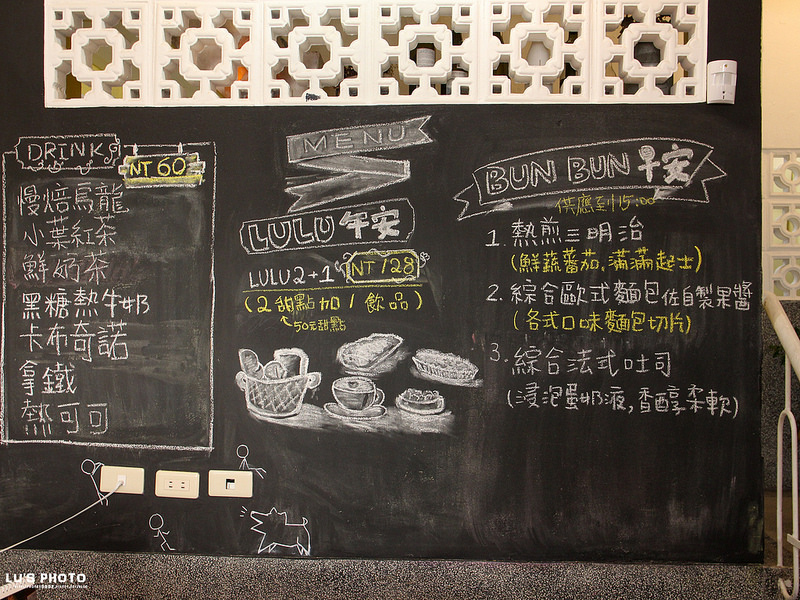 DRINKS
NT 60
慢焙烏龍
小葉紅茶
鮮奶茶
黑糖熱牛奶
卡布奇諾
拿鐵
熱可可
MENU
LULU 午安
LULU 2+1 NT 128
(2 甜點加 1 飲品)
50元甜點
BUN BUN 早安
供應到15:00
1. 熱煎三明治
(鮮蔬蕃茄.滿滿起士)
2. 綜合歐式麵包佐自製果醬
(各式口味麵包切片)
3. 綜合法式吐司
(浸泡蛋奶液,香醇柔軟)
LU'S PHOTO